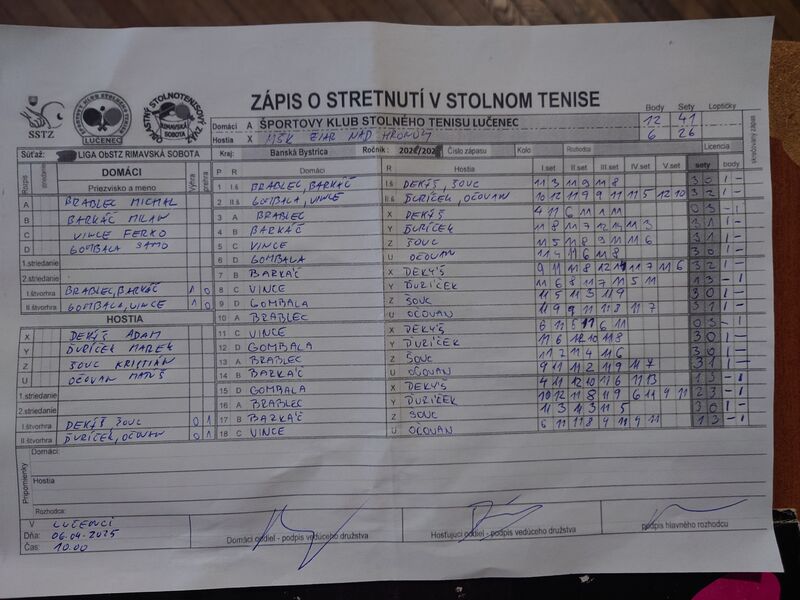 SSTZ
SPORTOVÝ KLUB STOLNÉHO TENISU
LUČENEC
OBLASTNÝ STOLNOTENISOVÝ ZVÄZ
RIMAVSKÁ SOBOTA
ZÁPIS O STRETNUTÍ V STOLNOM TENISE
Body Sety Loptičky
Domáci A ŠPORTOVY KLUB STOLNÉHO TENISU LUČENEC 12 41
Hostia X MŠK ŽIAR NAD HRONOM 6 26
Súťaž: LIGA ObSTZ RIMAVSKÁ SOBOTA Kraj: Banská Bystrica Ročník: Číslo zápasu Kolo Rozhodca Licencia
DOMÁCI
Priezvisko a meno
Výhra
prehra
P R Domáci R Hostia I.set II.set III.set IV.set V.set sety body
A BRABLEC MICHAL
B BARKÁČ MILAN
C VINCE FERKO
D GOMBALA SAMO
1.striedanie
2.striedanie
I.štvorhra BRABLEC, BARKÁČ 1 0
II.štvorhra GOMBALA, VINCE 1 0
HOSTIA
X DEKÝŠ ADAM
Y ĎURÍČEK MAREK
Z ŠOUC KRISTIÁN
U OČOVAN MATÚŠ
1.striedanie
2.striedanie
I.štvorhra DEKÝŠ, ŠOUC 0 1
II.štvorhra ĎURÍČEK, OČOVAN 0 1
1 I.š BRABLEC, BARKÁČ I.š DEKÝŠ, ŠOUC 11 3 11 9 11 8 3 0 1 -
2 II.š GOMBALA, VINCE II.š ĎURÍČEK, OČOVAN 10 12 11 9 9 11 11 5 12 10 3 2 1 -
3 A BRABLEC X DEKÝŠ 4 11 6 11 0 3 - 1
4 B BARKÁČ Y ĎURÍČEK 11 8 11 7 12 13 11 3 3 1 1 -
5 C VINCE Z ŠOUC 11 5 11 8 9 11 11 6 3 1 1 -
6 D GOMBALA U OČOVAN 11 4 11 6 11 8 3 0 1 -
7 B BARKÁČ X DEKÝŠ 9 11 11 8 11 7 11 6 3 2 1 -
8 C VINCE Y ĎURÍČEK 11 6 8 11 7 11 5 11 1 3 - 1
9 D GOMBALA Z ŠOUC 11 5 11 3 11 9 3 0 1 -
10 A BRABLEC U OČOVAN 11 9 9 11 11 8 11 7 3 1 1 -
11 C VINCE X DEKÝŠ 6 11 5 11 6 11 0 3 - 1
12 D GOMBALA Y ĎURÍČEK 11 6 12 10 11 8 3 0 1 -
13 A BRABLEC Z ŠOUC 11 7 11 4 11 6 3 0 1 -
14 B BARKÁČ U OČOVAN 9 11 11 2 11 9 11 7 3 1 1 -
15 D GOMBALA X DEKÝŠ 4 11 12 10 11 13 1 3 - 1
16 A BRABLEC Y ĎURÍČEK 10 12 11 8 11 9 6 11 9 11 2 3 - 1
17 B BARKÁČ Z ŠOUC 11 3 11 5 3 0 1 -
18 C VINCE U OČOVAN 6 11 11 8 4 11 9 11 1 3 - 1
Pripomienky
Domáci:
Hostia
Rozhodca:
V LUČENCI
Dňa: 06.04.2025
Čas: 10.00
Domáci oddiel - podpis vedúceho družstva
Hosťujúci oddiel - podpis vedúceho družstva
podpis hlavného rozhodcu